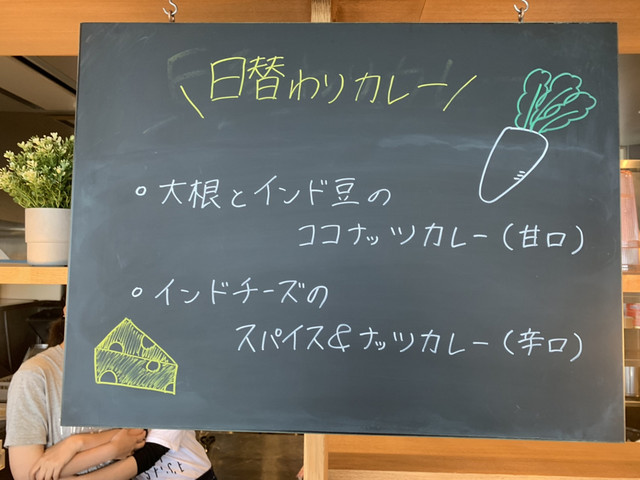 \日替わりカレー/
○ 大根とインド豆の
ココナッツカレー(甘口)
○ インドチーズの
スパイス&ナッツカレー(辛口)